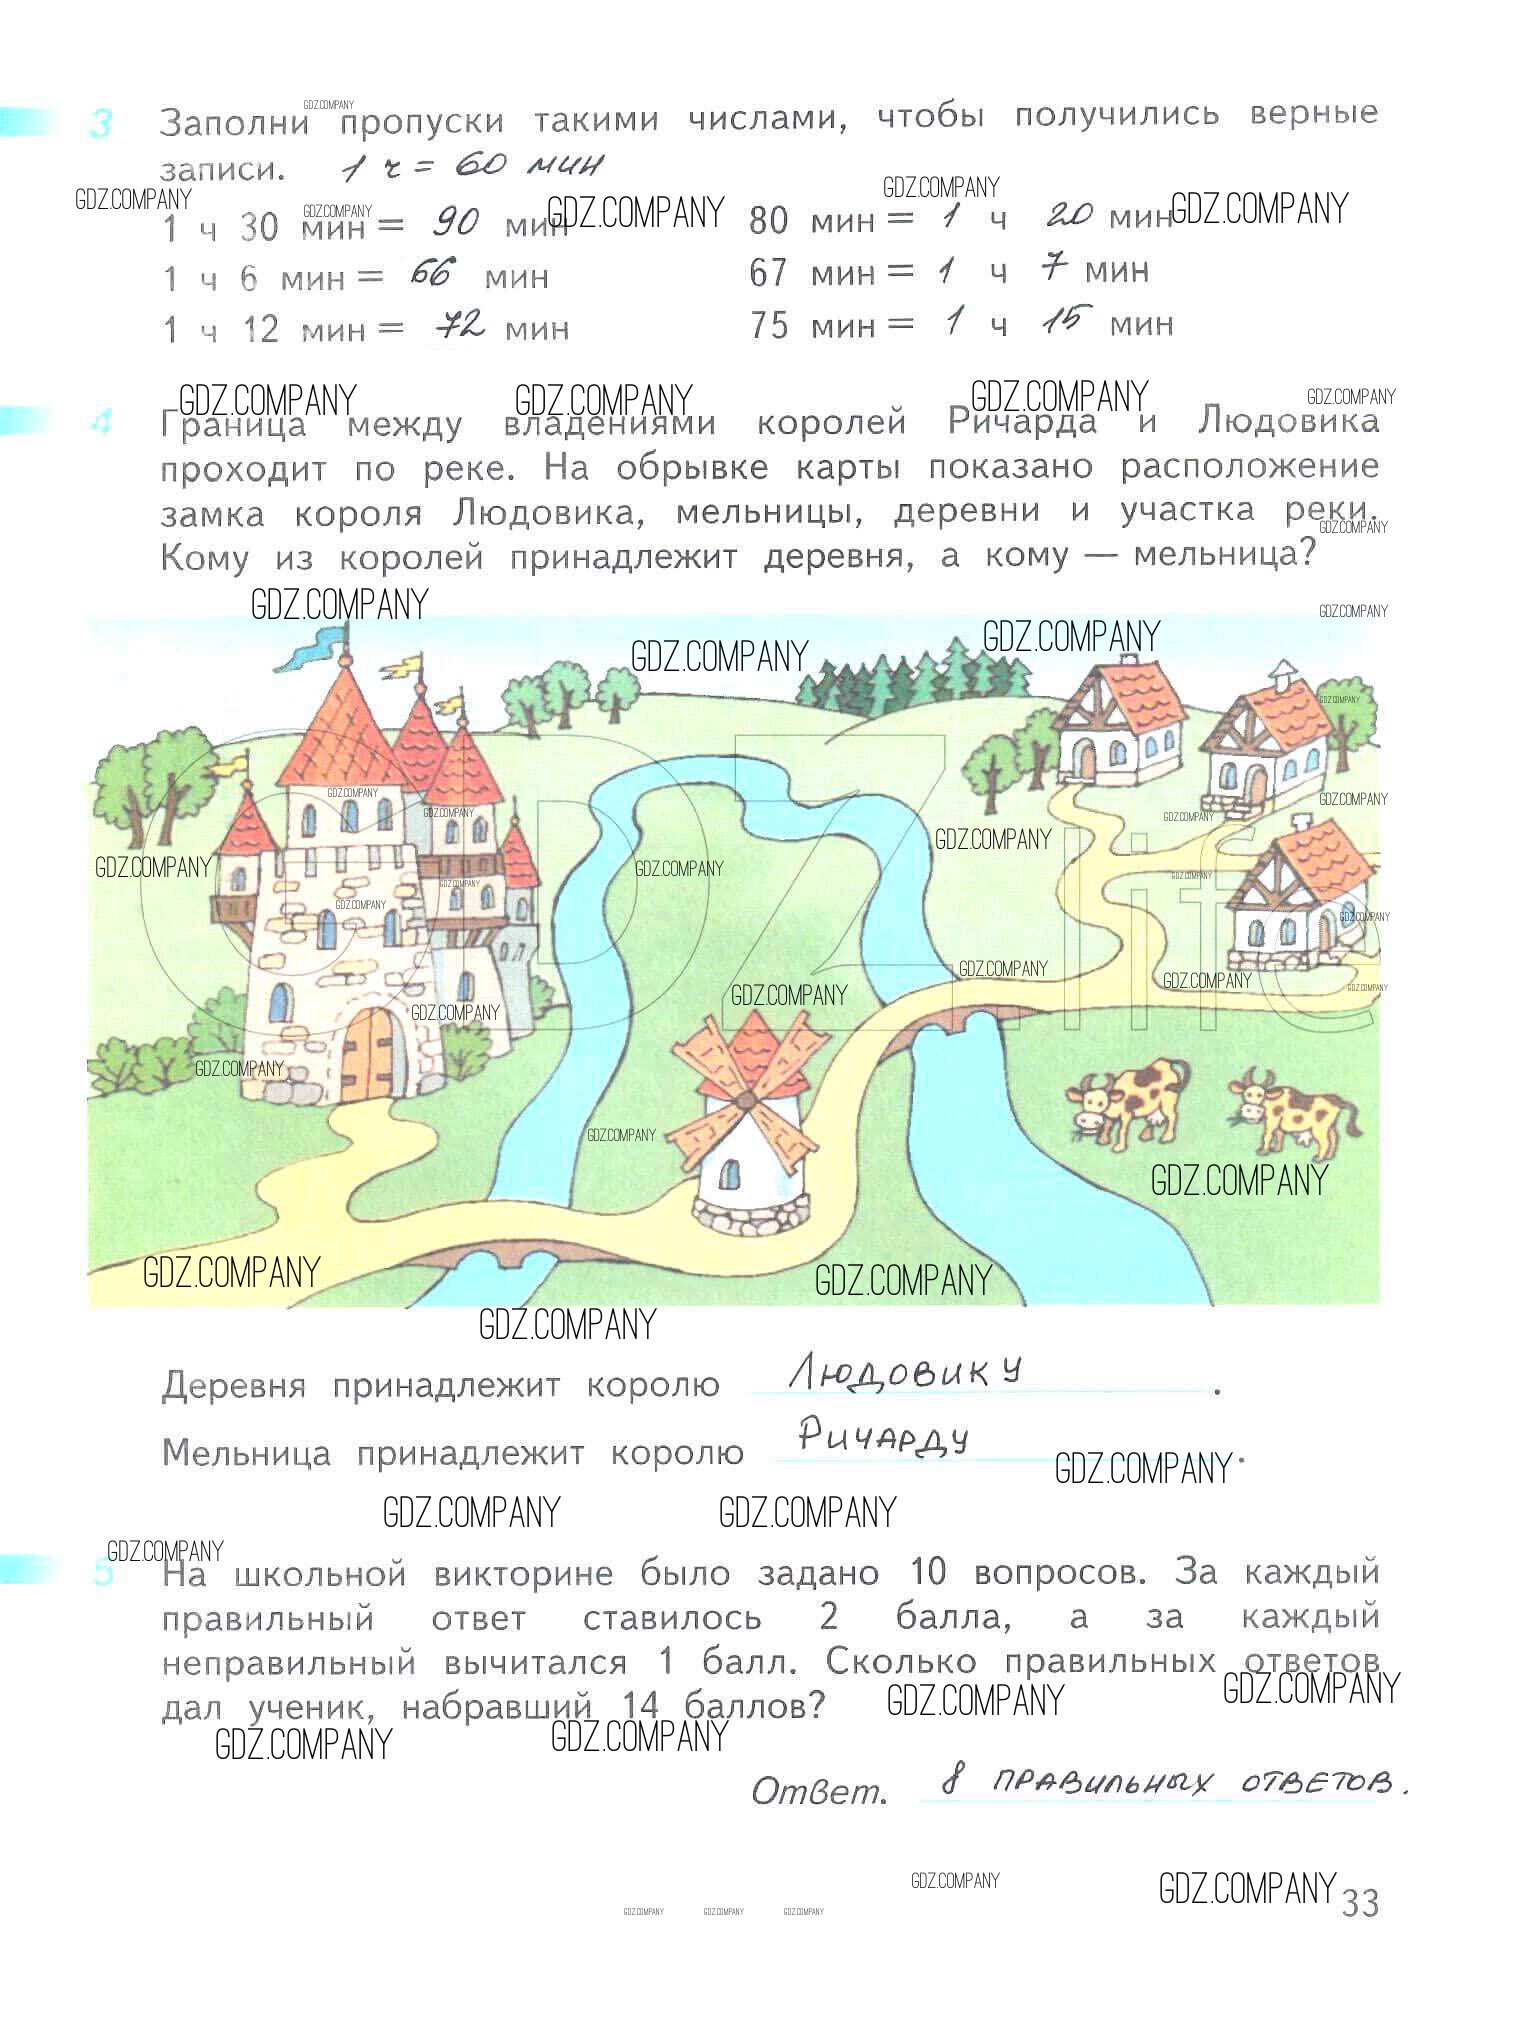 3 Заполни пропуски такими числами, чтобы получились верные
записи. 1 ч = 60 мин
1 ч 30 мин = 90 мин
1 ч 6 мин = 66 мин
1 ч 12 мин = 72 мин
80 мин = 1 ч 20 мин
67 мин = 1 ч 7 мин
75 мин = 1 ч 15 мин
4 Граница между владениями королей Ричарда и Людовика
проходит по реке. На обрывке карты показано расположение
замка короля Людовика, мельницы, деревни и участка реки.
Кому из королей принадлежит деревня, а кому — мельница?
GDZ.COMPANY
GDZlife
Деревня принадлежит королю Людовику.
Мельница принадлежит королю Ричарду.
5 На школьной викторине было задано 10 вопросов. За каждый
правильный ответ ставилось 2 балла, а за каждый
неправильный вычитался 1 балл. Сколько правильных ответов
дал ученик, набравший 14 баллов?
Ответ. 8 правильных ответов.
33